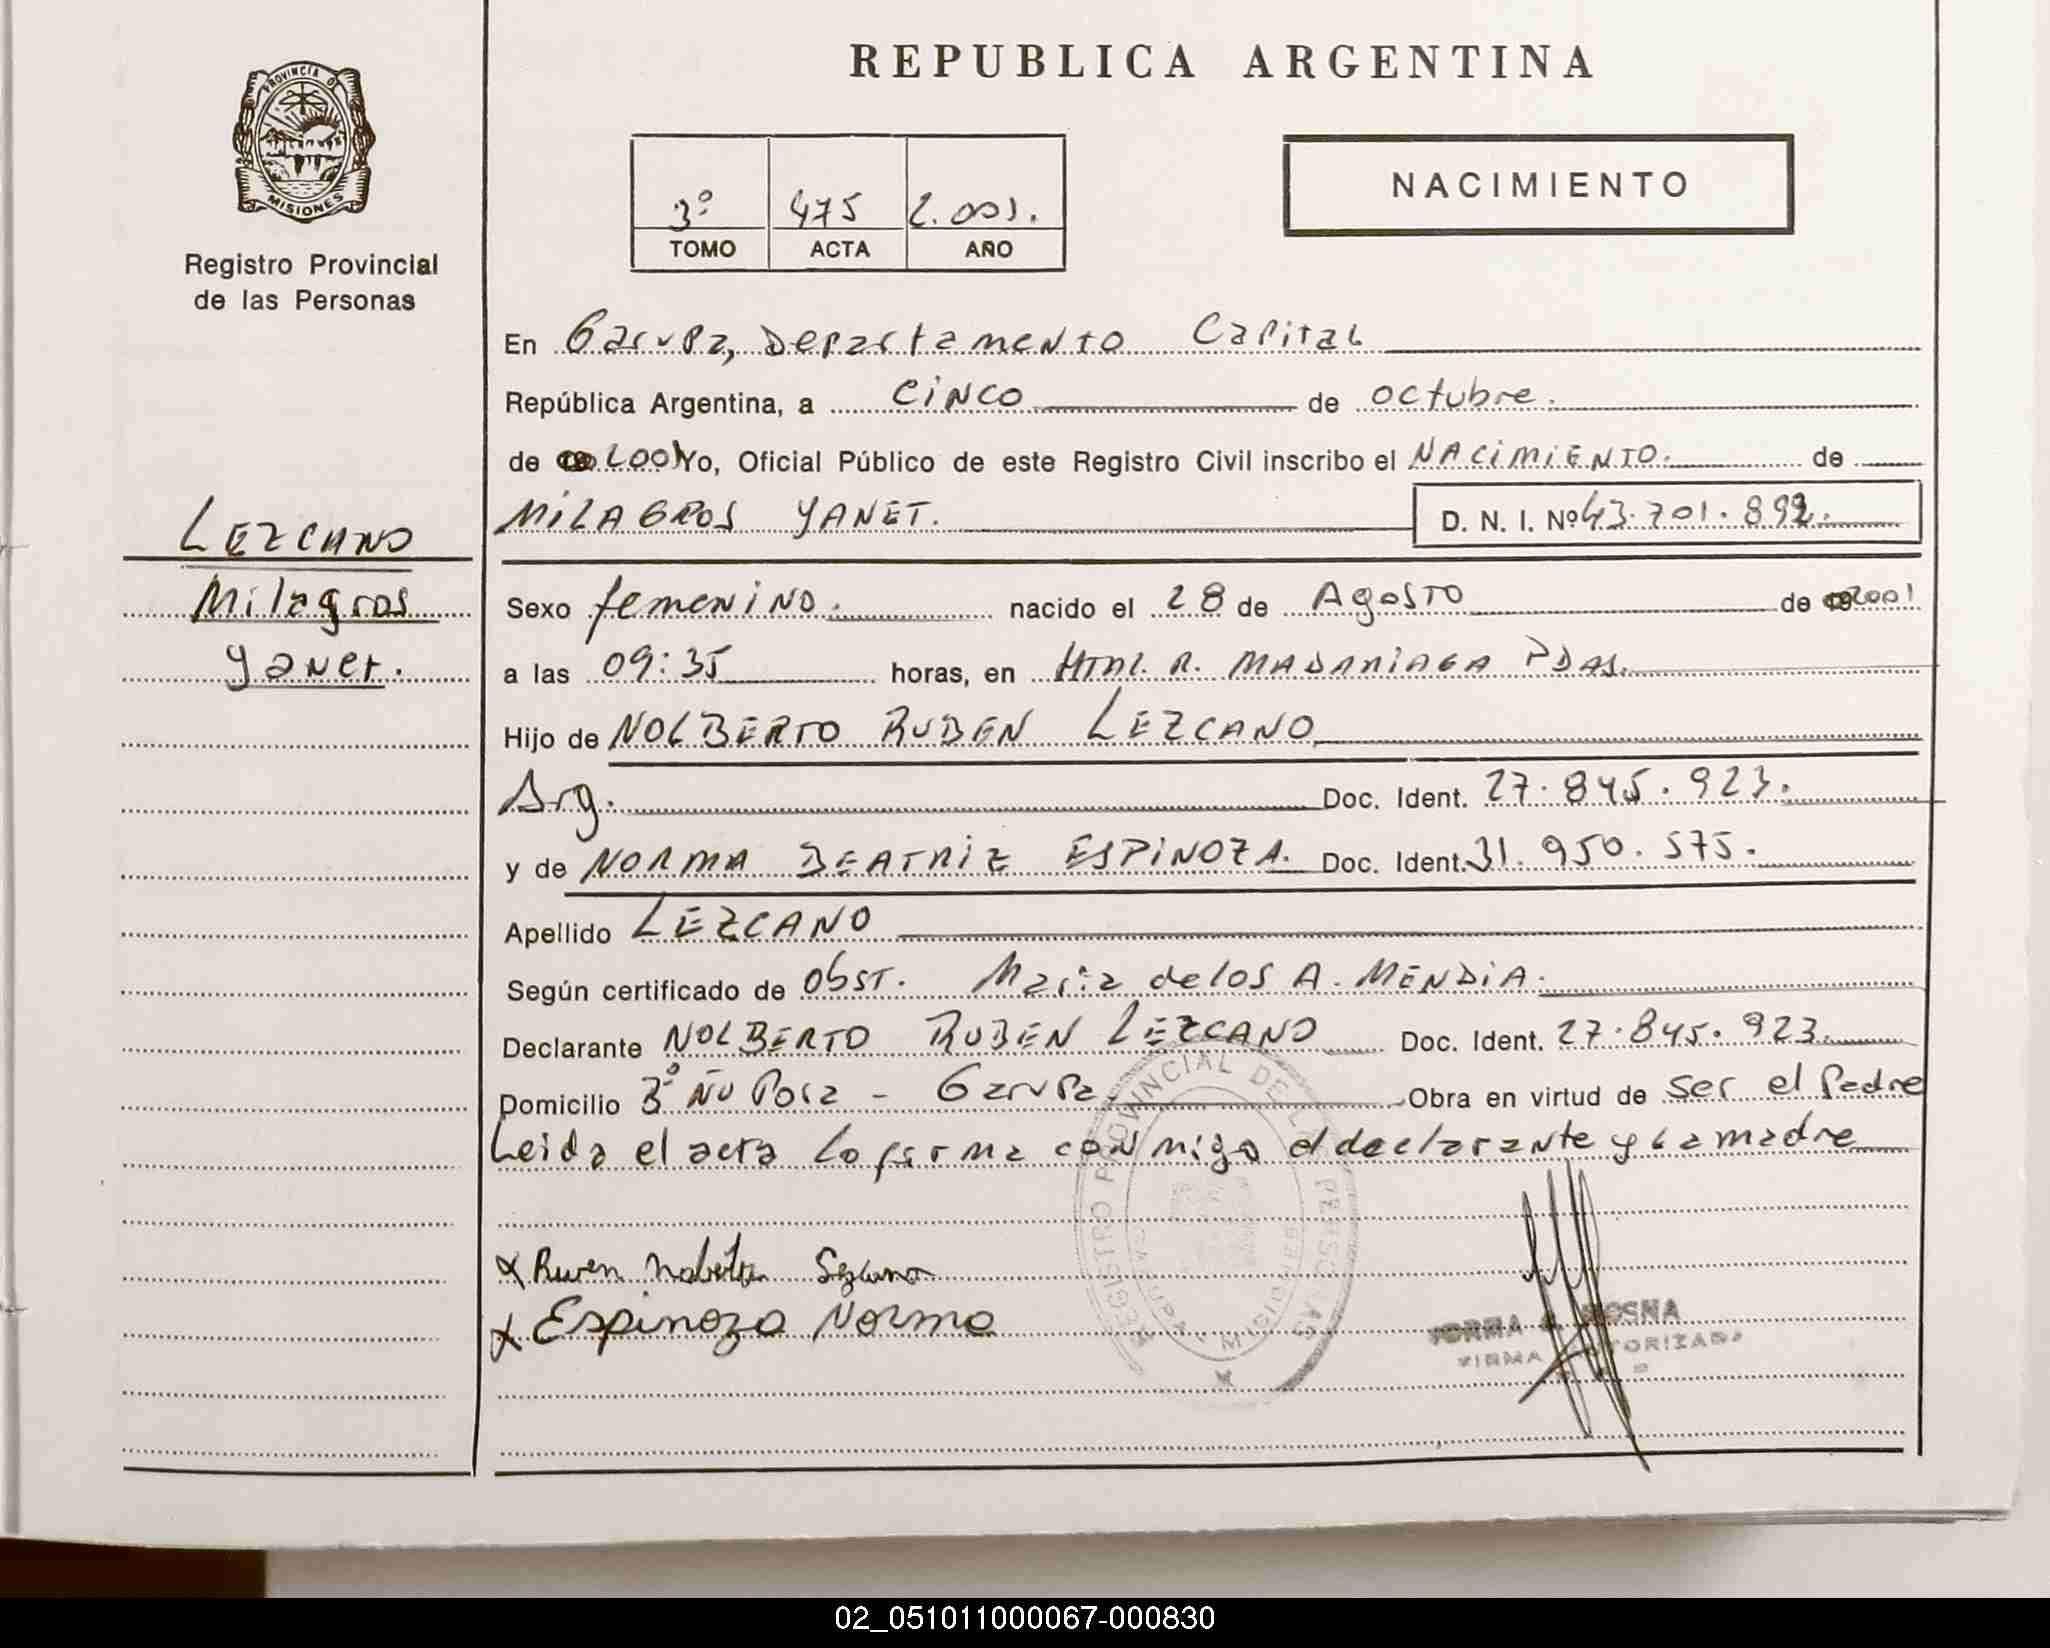 REPUBLICA ARGENTINA
PROVINCIA D
MISIONES
Registro Provincial
de las Personas
NACIMIENTO
3º 475 2.001.
TOMO ACTA AÑO
En Garupa, Departamento Capital
República Argentina, a cinco de octubre.
de 2001 Yo, Oficial Público de este Registro Civil inscribo el NACIMIENTO. de
MILAGROS YANET. D. N. I. Nº 43.701.892.
LEZCANO
Milagros
Yanet.
Sexo femenino. nacido el 28 de Agosto de 2001
a las 09:35 horas, en Htal. R. MADARIAGA PDAS.
Hijo de NOLBERTO RUBEN LEZCANO
Arg. Doc. Ident. 27.845.923.
y de NORMA BEATRIZ ESPINOZA. Doc. Ident. 31.950.575.
Apellido LEZCANO
Según certificado de Obst. Maria de los A. MENDIA.
Declarante NOLBERTO RUBEN LEZCANO Doc. Ident. 27.845.923.
Domicilio Bº Ñu Pora - Garupa. Obra en virtud de ser el Padre
Leida el acta la firma conmigo el declarante y la madre
REGISTRO PROVINCIAL DE LAS PERSONAS
GARUPA MISIONES
x Ruven
x Espinoza Norma
FIRMA AUTORIZADA
02_051011000067-000830